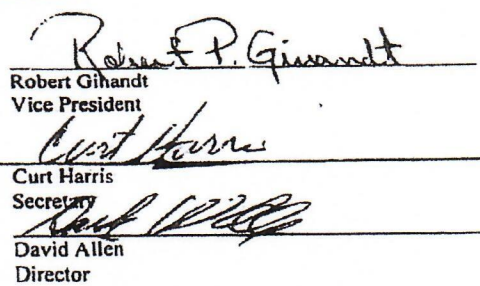 Robert P. Ginandt
Robert Ginandt
Vice President
Curt Harris
Curt Harris
Secretary
David Allen
Director